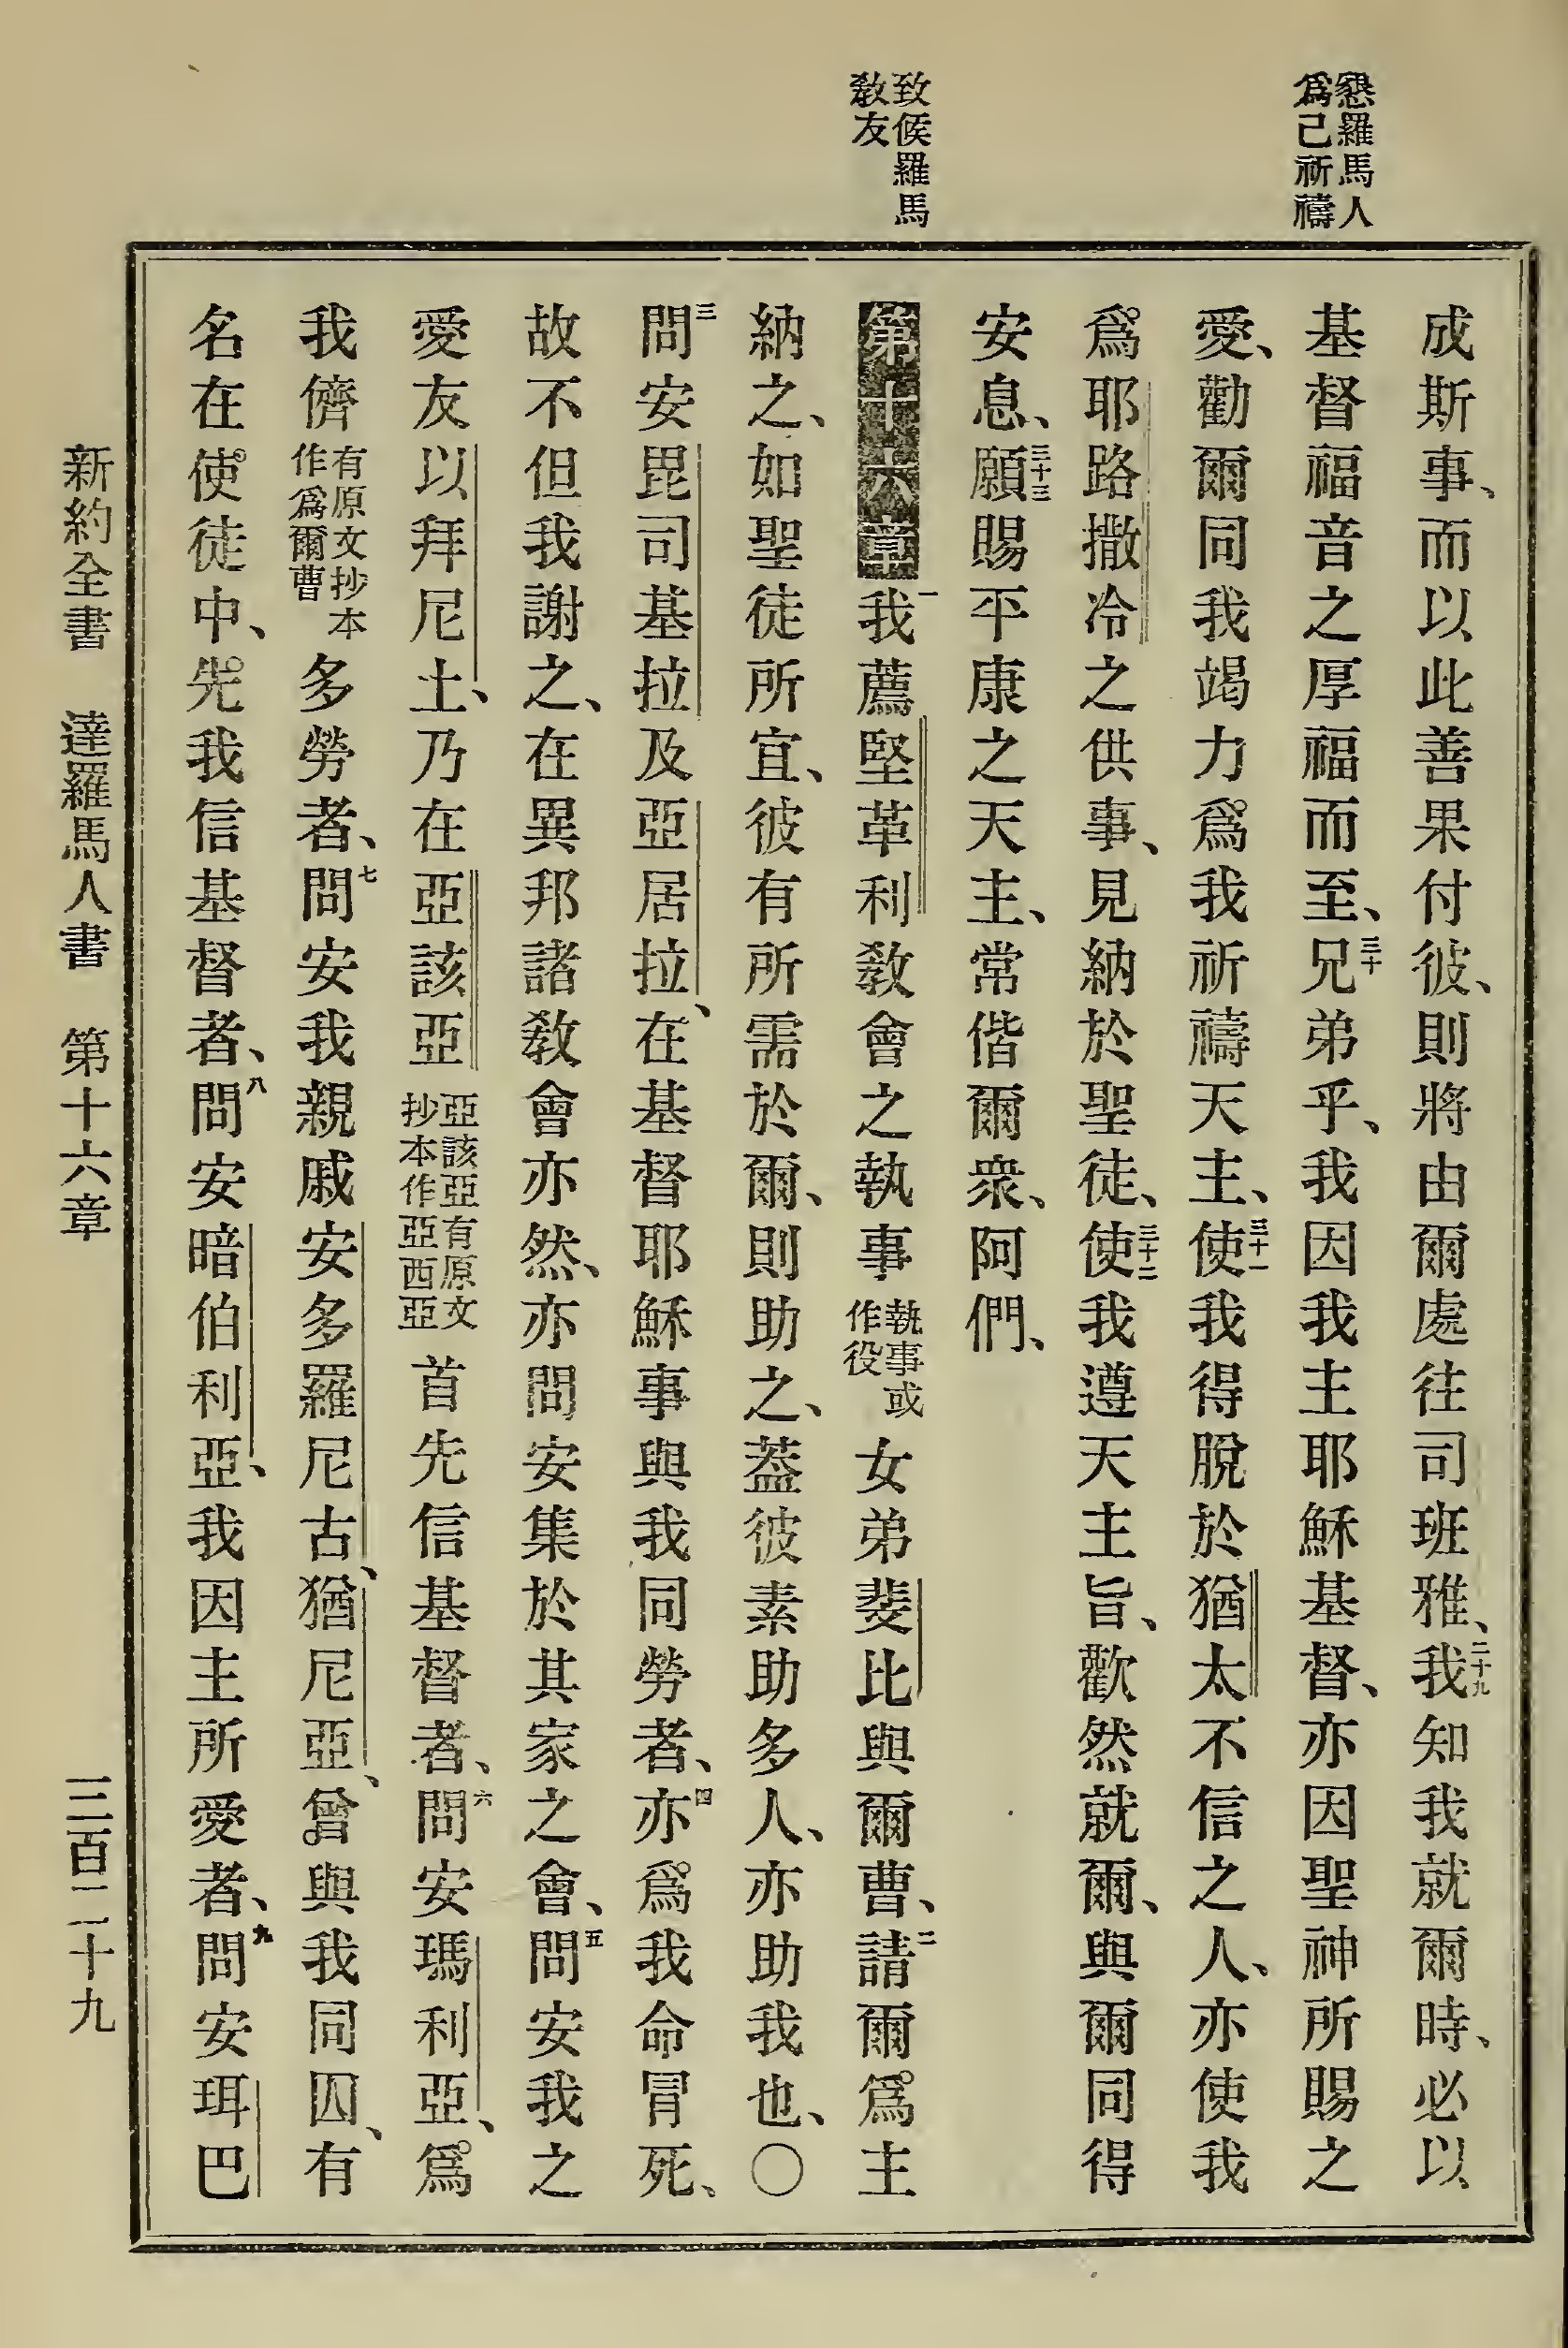 懇羅馬人
爲己祈禱
致候羅馬
敎友
成斯事、而以此善果付彼、則將由爾處往司班雅、二十九我知我就爾時、必以
基督福音之厚福而至、三十兄弟乎、我因我主耶穌基督、亦因聖神所賜之
愛、勸爾同我竭力爲我祈禱天主、三十一使我得脫於猶太不信之人、亦使我
爲耶路撒冷之供事、見納於聖徒、三十二使我遵天主旨、歡然就爾、與爾同得
安息、三十三願賜平康之天主、常偕爾衆、阿們、
第十六章一我薦堅革利敎會之執事執事或作役女弟斐比與爾曹、二請爾爲主
納之、如聖徒所宜、彼有所需於爾、則助之、蓋彼素助多人、亦助我也、〇
三問安毘司基拉及亞居拉、在基督耶穌事與我同勞者、四亦爲我命冒死、
故不但我謝之、在異邦諸敎會亦然、亦問安集於其家之會、五問安我之
愛友以拜尼土、乃在亞該亞亞該亞有原文抄本作亞西亞首先信基督者、六問安瑪利亞、爲
我儕有原文抄本作爲爾曹多勞者、七問安我親戚安多羅尼古、猶尼亞、曾與我同囚、有
名在使徒中、先我信基督者、八問安暗伯利亞、我因主所愛者、九問安珥巴
新約全書 達羅馬人書 第十六章 三百二十九